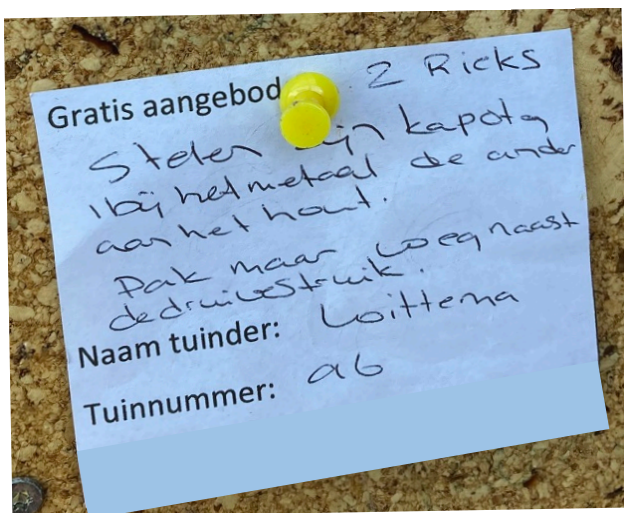 Gratis aangebod 2 Rieks
Stelen zijn kapot
1 bij het metaal de ander
aan het hout.
Pak maar weg naast
de druivestruik.
Naam tuinder: Wittema
Tuinnummer: a6